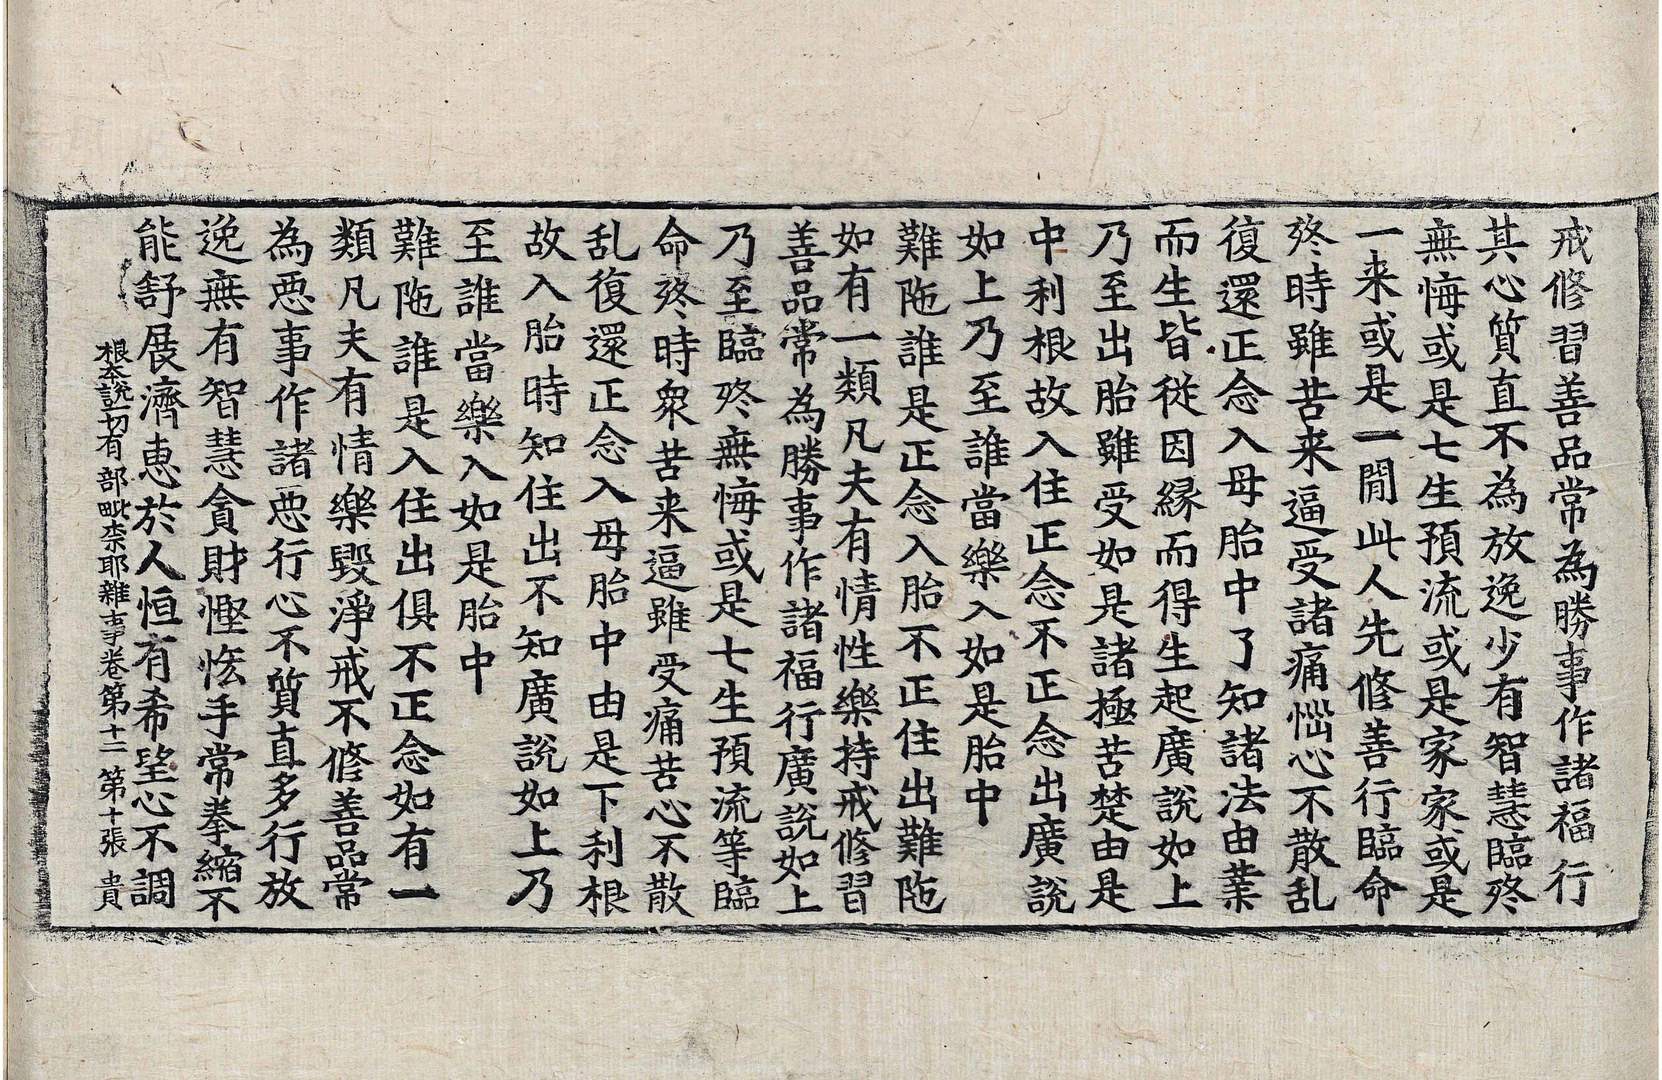 戒修習善品常為勝事作諸福行
其心質直不為放逸少有智慧臨終
無悔或是七生預流或是家家或是
一来或是一閒此人先修善行臨命
終時雖苦来逼受諸痛惱心不散乱
復還正念入母胎中了知諸法由業
而生皆從因縁而得生起廣說如上
乃至出胎雖受如是諸極苦楚由是
中利根故入住正念不正念出廣說
如上乃至誰當樂入如是胎中
難陁誰是正念入胎不正住出難陁
如有一類凡夫有情性樂持戒修習
善品常為勝事作諸福行廣說如上
乃至臨終無悔或是七生預流等臨
命終時衆苦来逼雖受痛苦心不散
乱復還正念入母胎中由是下利根
故入胎時知住出不知廣說如上乃
至誰當樂入如是胎中
難陁誰是入住出俱不正念如有一
類凡夫有情樂毀淨戒不修善品常
為惡事作諸惡行心不質直多行放
逸無有智慧貪財慳悋手常拳縮不
能舒展濟恵於人恒有希望心不調
根夲說一切有部毗柰耶雜事卷第十二 第十張 貴